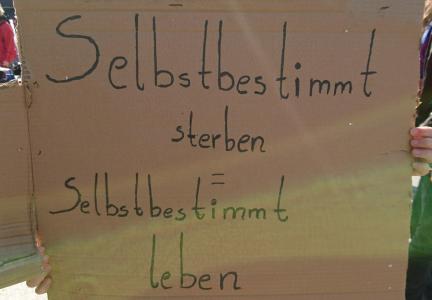 Selbstbestimmt
sterben
=
Selbstbestimmt
leben